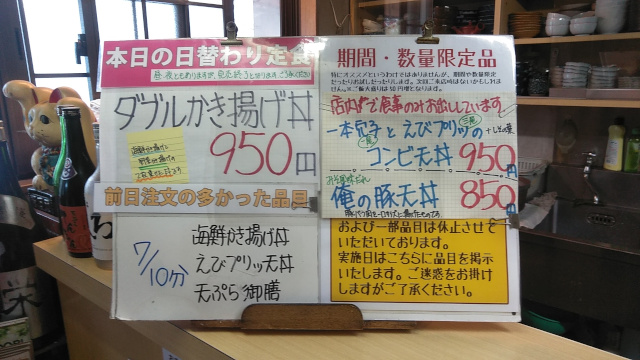 本日の日替わり定食
ダブルかき揚げ丼
950円
海鮮かき揚げ
野菜かき揚げの
前日注文の多かった品目
7/10分
海鮮かき揚げ丼
えびプリッ天丼
天ぷら御膳
期間・数量限定品
特にオススメというわけではありませんが、期間や数量限定
店内で食事のみお出ししています
一本穴子とえびプリッの
コンビ天丼 950円
俺の豚天丼 850円
および一部品目は休止させて
いただいております。
実施日はこちらに品目を掲示
いたします。ご迷惑をお掛け
しますがご了承ください。
栄